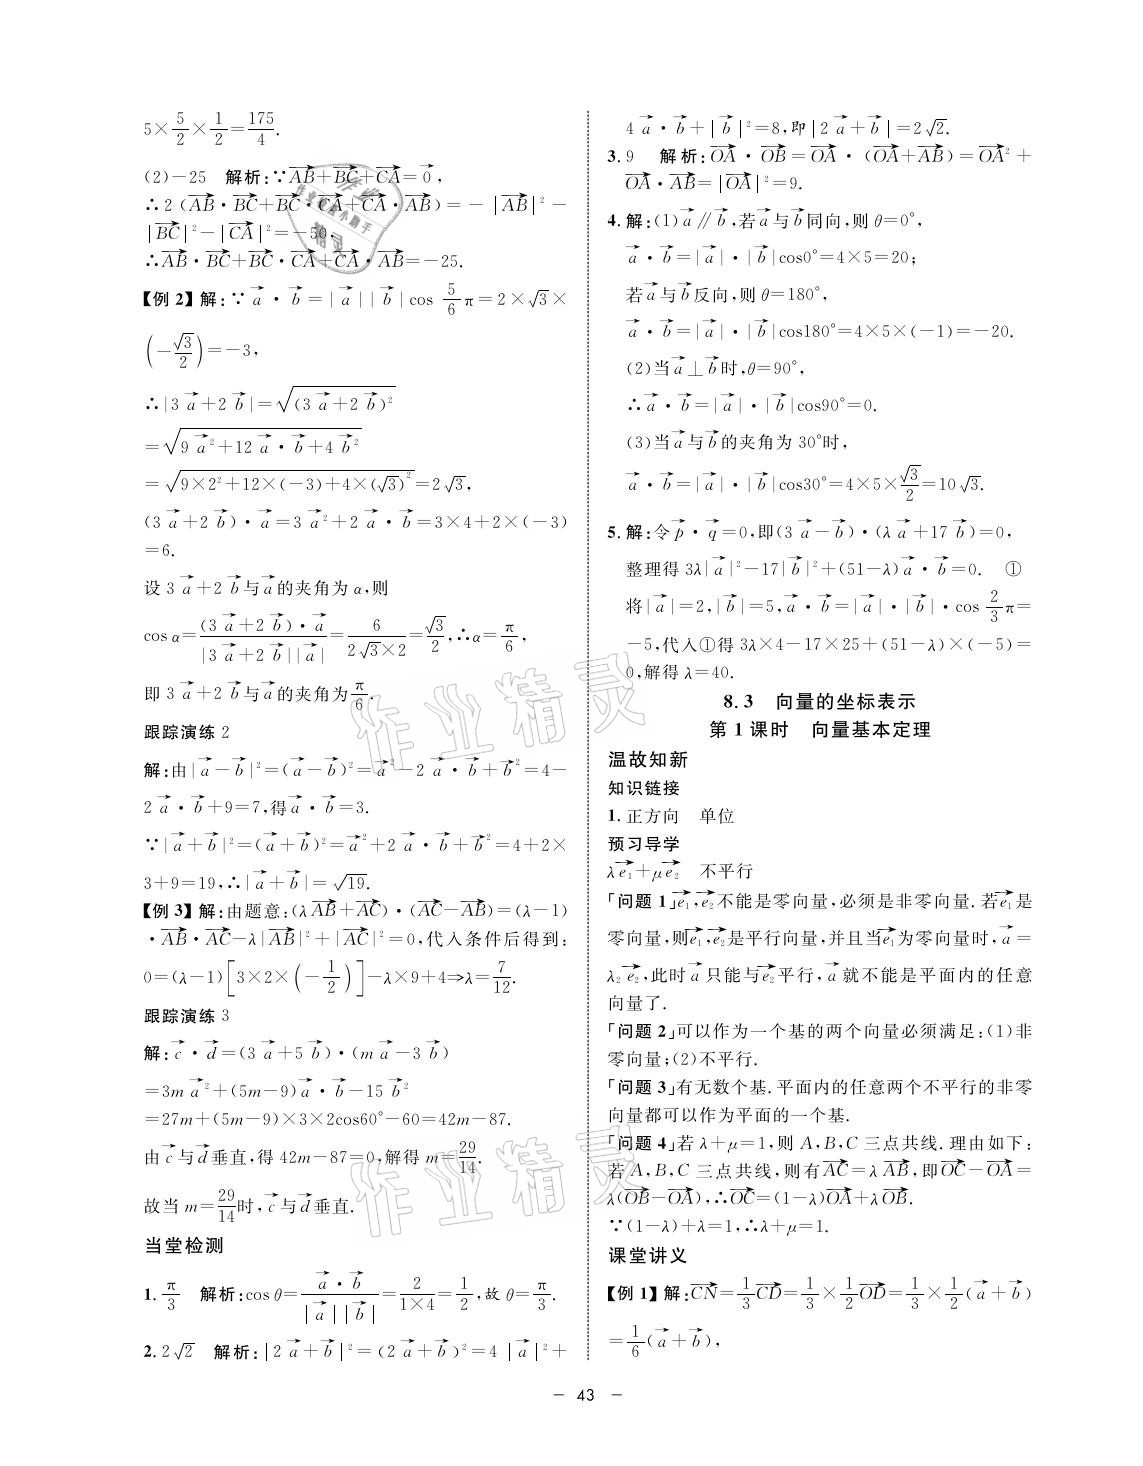 5×5/2×1/2=175/4.
(2)-25 解析:∵AB→+BC→+CA→=0→,
∴2(AB→·BC→+BC→·CA→+CA→·AB→)=-|AB→|²-
|BC→|²-|CA→|²=-50,
∴AB→·BC→+BC→·CA→+CA→·AB→=-25.
【例2】解:∵a→·b→=|a→||b→|cos 5/6π=2×√3×
(-√3/2)=-3,
∴|3a→+2b→|=√(3a→+2b→)²
=√(9a→²+12a→·b→+4b→²)
=√(9×2²+12×(-3)+4×(√3)²)=2√3,
(3a→+2b→)·a→=3a→²+2a→·b→=3×4+2×(-3)
=6.
设3a→+2b→与a→的夹角为α,则
cosα=(3a→+2b→)·a→/|3a→+2b→||a→|=6/2√3×2=√3/2,∴α=π/6,
即3a→+2b→与a→的夹角为π/6.
跟踪演练2
解:由|a→-b→|²=(a→-b→)²=a→²-2a→·b→+b→²=4-
2a→·b→+9=7,得a→·b→=3.
∵|a→+b→|²=(a→+b→)²=a→²+2a→·b→+b→²=4+2×
3+9=19,∴|a→+b→|=√19.
【例3】解:由题意:(λAB→+AC→)·(AC→-AB→)=(λ-1)
·AB→·AC→-λ|AB→|²+|AC→|²=0,代入条件后得到:
0=(λ-1)[3×2×(-1/2)]-λ×9+4⇒λ=7/12.
跟踪演练3
解:c→·d→=(3a→+5b→)·(ma→-3b→)
=3ma→²+(5m-9)a→·b→-15b→²
=27m+(5m-9)×3×2cos60°-60=42m-87.
由c→与d→垂直,得42m-87=0,解得m=29/14.
故当m=29/14时,c→与d→垂直.
当堂检测
1.π/3 解析:cosθ=a→·b→/|a→||b→|=2/1×4=1/2,故θ=π/3.
2.2√2 解析:|2a→+b→|²=(2a→+b→)²=4|a→|²+
4a→·b→+|b→|²=8,即|2a→+b→|=2√2.
3.9 解析:OA→·OB→=OA→·(OA→+AB→)=OA→²+
OA→·AB→=|OA→|²=9.
4.解:(1)a→∥b→,若a→与b→同向,则θ=0°,
a→·b→=|a→|·|b→|cos0°=4×5=20;
若a→与b→反向,则θ=180°,
a→·b→=|a→|·|b→|cos180°=4×5×(-1)=-20.
(2)当a→⊥b→时,θ=90°,
∴a→·b→=|a→|·|b→|cos90°=0.
(3)当a→与b→的夹角为30°时,
a→·b→=|a→|·|b→|cos30°=4×5×√3/2=10√3.
5.解:令p→·q→=0,即(3a→-b→)·(λa→+17b→)=0,
整理得3λ|a→|²-17|b→|²+(51-λ)a→·b→=0. ①
将|a→|=2,|b→|=5,a→·b→=|a→|·|b→|·cos 2/3π=
-5,代入①得3λ×4-17×25+(51-λ)×(-5)=
0,解得λ=40.
8.3 向量的坐标表示
第1课时 向量基本定理
温故知新
知识链接
1.正方向 单位
预习导学
λe₁→+μe₂→ 不平行
「问题1」e₁→,e₂→不能是零向量,必须是非零向量.若e₁→是
零向量,则e₁→,e₂→是平行向量,并且当e₁→为零向量时,a→=
λ₂e₂→,此时a→只能与e₂→平行,a→就不能是平面内的任意
向量了.
「问题2」可以作为一个基的两个向量必须满足:(1)非
零向量;(2)不平行.
「问题3」有无数个基.平面内的任意两个不平行的非零
向量都可以作为平面的一个基.
「问题4」若λ+μ=1,则A,B,C三点共线.理由如下:
若A,B,C三点共线,则有AC→=λAB→,即OC→-OA→=
λ(OB→-OA→),∴OC→=(1-λ)OA→+λOB→.
∵(1-λ)+λ=1,∴λ+μ=1.
课堂讲义
【例1】解:CN→=1/3CD→=1/3×1/2OD→=1/3×1/2(a→+b→)
=1/6(a→+b→),
- 43 -
作业精灵
作业精灵